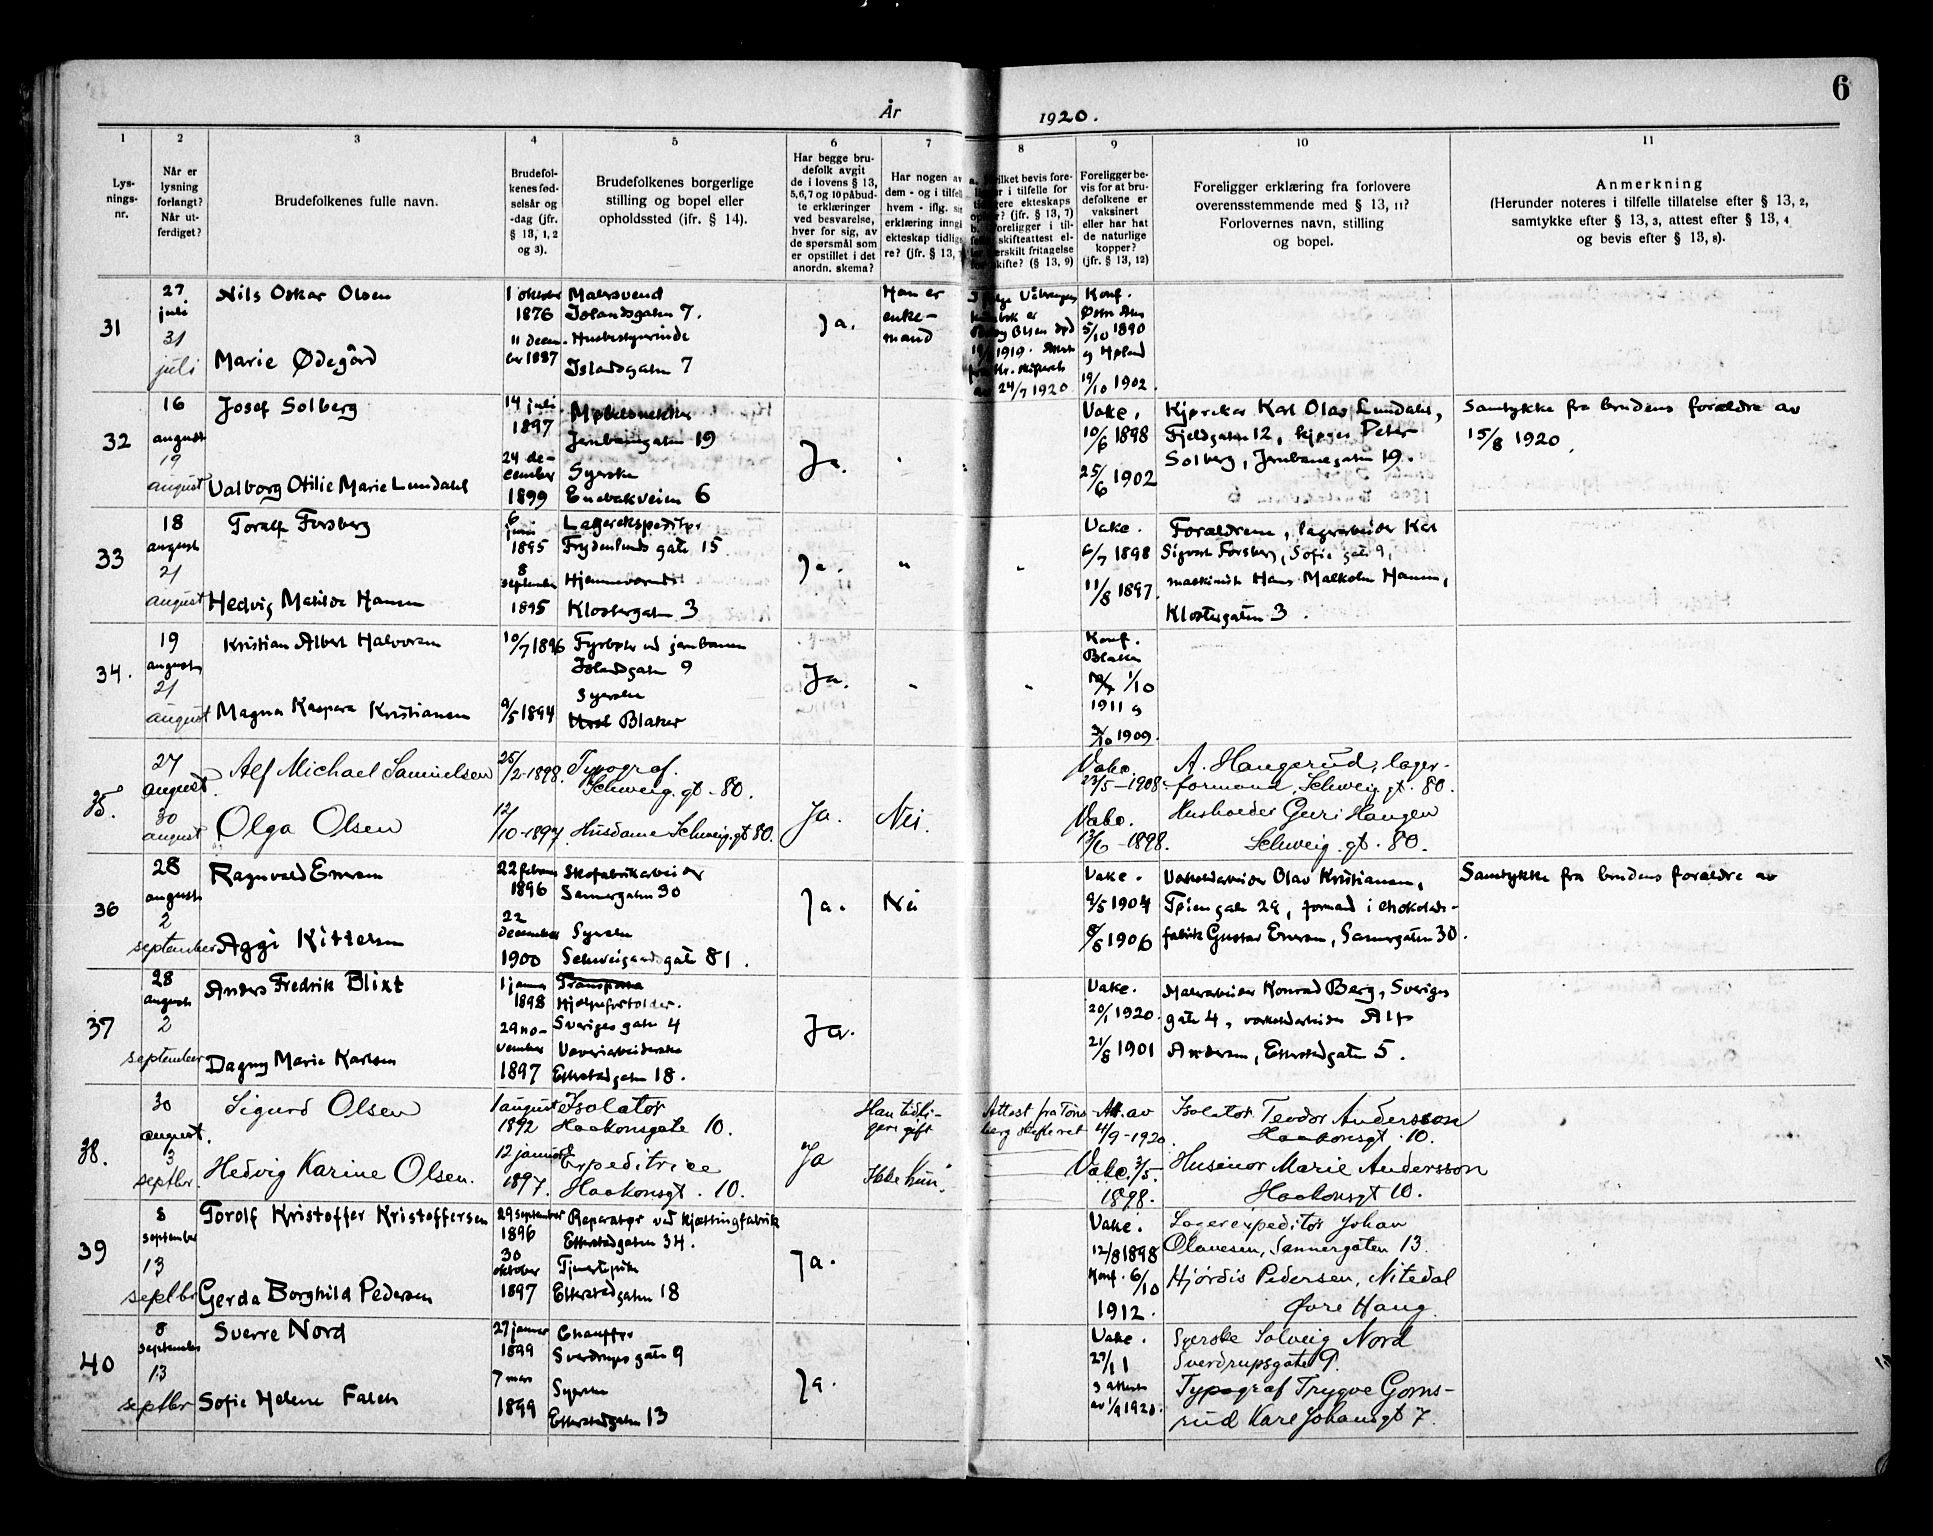 6
År 1920.
1
Lys-
nings-
nr.
2
Når er
lysning
forlangt?
Når ut-
ferdiget?
3
Brudefolkenes fulle navn.
4
Brudefol-
kenes fød-
selsår og
-dag (jfr.
§ 13, 1, 2
og 3).
5
Brudefolkenes borgerlige
stilling og bopel eller
opholdssted (jfr. § 14).
6
Har begge bru-
defolk avgit
de i lovens § 13,
5,6,7 og 10 påbud-
te erklæringer
ved besvarelse,
hver for sig, av
de spørsmål som
er opstillet i det
anordn. skema?
7
Har nogen av
dem - og i tilfelle
hvem - iflg. sin
erklæring inngått
ekteskap tidlige-
re? (jfr. § 13,
8
9
Foreligger be-
vis for at bru-
defolkene er
vaksinert
eller har hat
de naturlige
kopper?
(jfr. § 13, 12)
10
Foreligger erklæring fra forlovere
overensstemmende med § 13, 11?
Forlovernes navn, stilling
og bopel.
11
Anmerkning
(Herunder noteres i tilfelle tillatelse efter § 13, 2,
samtykke efter § 13, 3, attest efter § 13, 4
og bevis efter § 13, 8).
31
27
juli
31
juli
Nils Oskar Olsen
Marie Ødegård
1 oktober
1876
11 decem-
ber 1887
Malersvend
Islandsgaten 7.
Husbestyrerinde
Islandsgaten 7
Ja.
Han er
enke-
mand
24/7 1920
Konf.
5/10 1890
19/10 1902.
32
16
august
19
august
Josef Solberg
Valborg Otilie Marie Lundahl
14 juli
1897
24 de-
cember
1899
Møbelsnekker
Jernbanegaten 19
Syerske
Enebakveien 6
Ja.
"
Vakc.
10/6 1898
25/6 1902
Kjørekar Karl Olav Lundahl,
Fjeldgaten 12, Peter
Solberg, Jernbanegaten 19.
Samtykke fra brudens forældre av
15/8 1920.
33
18
august
21
august
Toralf Forsberg
Hedvig Matilde Hansen
6
juni
1895
8
september
1895
Lagerekspeditør
Frydenlunds gate 15
Hjemmeværende
Klostergaten 3
Ja.
"
"
Vakc.
6/7 1898
11/8 1897.
Forældrene, lagerarbeider Karl
Sigvart Forsberg, Sofies gate 9,
maskinist Hans Malkolm Hansen,
Klostergaten 3.
34.
19
august
21
august
Kristian Albert Halvorsen
Magna Kaspara Kristiansen
10/7 1896
9/5 1894
Fyrbøter ved jernbanen
Islandsgaten 9
Syerske
Blaker
Ja.
"
"
Konf.
Blaker
1/10
1911 og
3/10 1909.
35.
27
august.
30
august
Alf Michael Samuelsen
Olga Olsen
25/2-1898.
12/10-1897.
Typograf.
Schweig. gt. 80.
Husdame Schweig. gt 80.
Ja.
Nei.
Vakc.
23/5-1908.
Vakc.
13/6-1898.
A. Haugerud, lager-
formand, Schweig gt. 80.
Husholder Guri Haugen
Schweig. gt. 80.
36
28
august
2
september
Ragnvald Emrson
Aggi Kittersen
22 februar
1896
22
december
1900
Skofabrikarbeider
Sannergaten 30
Syerske
Schweigaardsgate 81.
Ja.
Nei
Vakc.
9/5 1904
8/8 1906
Verkstedarbeider Olav Kristiansen,
29, formand i chokolade-
fabrik Gustav Emrson, Sannergaten 30.
Samtykke fra brudens forældre av
37
28
august
2
september
Anders Fredrik Blixt
Dagny Marie Karlsen
1 januar
1898
29 no-
vember
1897
Hjælpeforvolder.
Sveriges gate 4
Væveriarbeiderske
Etterstadgaten 18.
Ja.
Vakc.
20/1 1920.
21/8 1901
Malerarbeider Konrad Berg, Sveriges
gate 4, verkstedarbeider Alf
Andersen, Etterstadgaten 5.
38.
30
august.
3
septbr.
Sigurd Olsen
Hedvig Karine Olsen.
1 august
1892
12 januar
1897.
Isolatør
Haakonsgate 10.
Expeditrice
Haakonsgt. 10.
Ja
Han tidli-
gere gift
Ikke hun.
Attest fra Tøns-
berg skifteret
Att. av
4/9-1920.
Vakc. 3/5.
1898.
Isolatør Teodor Andersson
Haakonsgt. 10.
Husmor Marie Andersson
Haakonsgt 10.
39
8
september
13
septbr
Torolf Kristoffer Kristoffersen
Gerda Borghild Pedersen
29 september
1896
30
oktober
1897
Reparatør ved Kjættingfabrik
Etterstadgaten 34.
Tjenestepike
Etterstadgaten 18
Ja.
Vakc.
12/8 1898
Konf. 6/10
1912.
Lagerexpeditør Johan
Olavesen, Sannergaten 13.
Hjørdis Pedersen, Nitedal
Øvre Haug.
40
8
september
13
septbr
Sverre Nord
Sofie Helene Falch
27 januar
1899
7 mars
1899
Chauffør
Sverdrups gate 9
Syerske
Etterstadgaten 13
Ja.
Vakc.
27/1 1
g attest
av 1/9 1920.
Syerske Solveig Nord
Sverdrupsgate 9.
Typograf Trygve Goms-
rud Karl Johansgt 7.